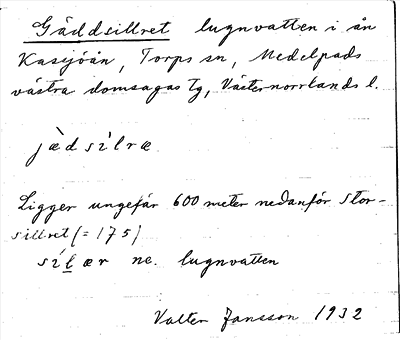 Gäddsillret lugnvatten i ån
Kasjöån, Torps sn, Medelpads
västra domsagas tg, Västernorrlands l.
jæ̀dsìlræ
Ligger ungefär 600 meter nedanför Stor-
sillret (= 175)
sílær ne. lugnvatten
Valter Jansson 1932